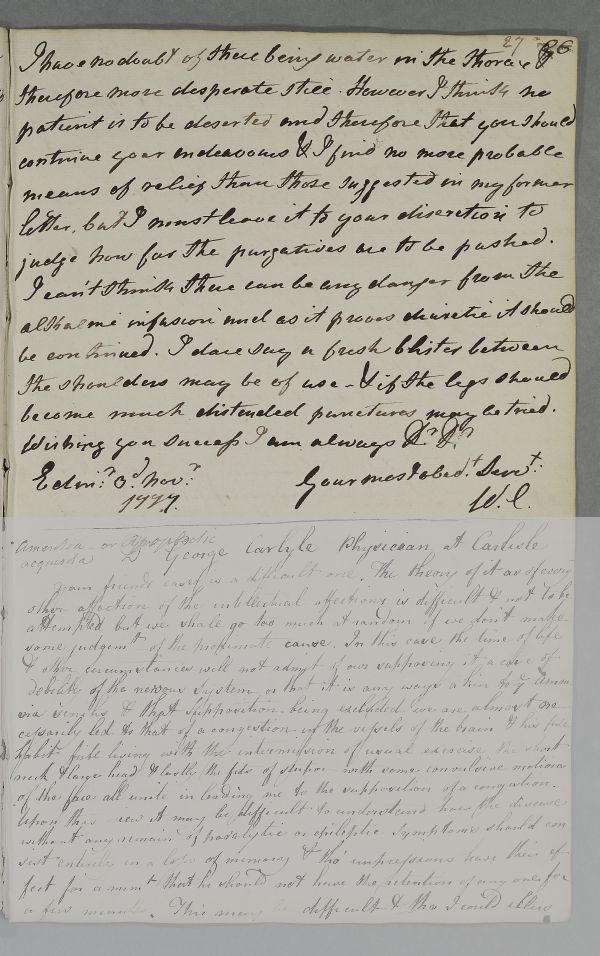 27 26
I have no doubt of there being water in the thorax &
therefore more desperate still. However I think no
patient is to be deserted and therefore that you should
continue your endeavours & I find no more probable
means of relief than those suggested in my former
letter, but I must leave it to your discretion to
judge how far the purgatives are to be pushed.
I can't think there can be any danger from the
alkaline infusion and as it proves diuretic it should
be continued. I dare say a fresh blister between
the shoulders may be of use - & if the legs should
become much distended punctures may be tried.
Wishing you success I am always Dr. Sr.
Edinr. 3d. Novr. Your most obedt. Servt:
1777. W. C.
Amentia or
acquisita Dr George Carlyle Physician at Carlisle
your friends case is a difficult one. The theory of it as of every
other affection of the intellectual affections is difficult & not to be
attempted but we shall go too much at random if we don't make
some judgemt. of the proximate cause. In this case the time of life
& other circumstances will not admit of our supposing it a case of
debility of the nervous system or that it is any ways akin to ye Amen
tia senilis & that supposition being excluded we are almost ne
cessarily led to that of a congestion in the vessels of the brain & his full
habit full living with the intermission of usual exercise the short
neck & large head & lastly the fits of stupor with some convulsive motions
of the face all unite in leading me to the supposition of a congestion.
Upon this view it may be difficult to understand how the disease
without any remains of paralytic or epileptic symptoms should con
sist entirely in a loss of memory & tho' impressions have their ef
fect for a mint. that he should not have the retention of any one for
a few minutes. This may be difficult & tho I could